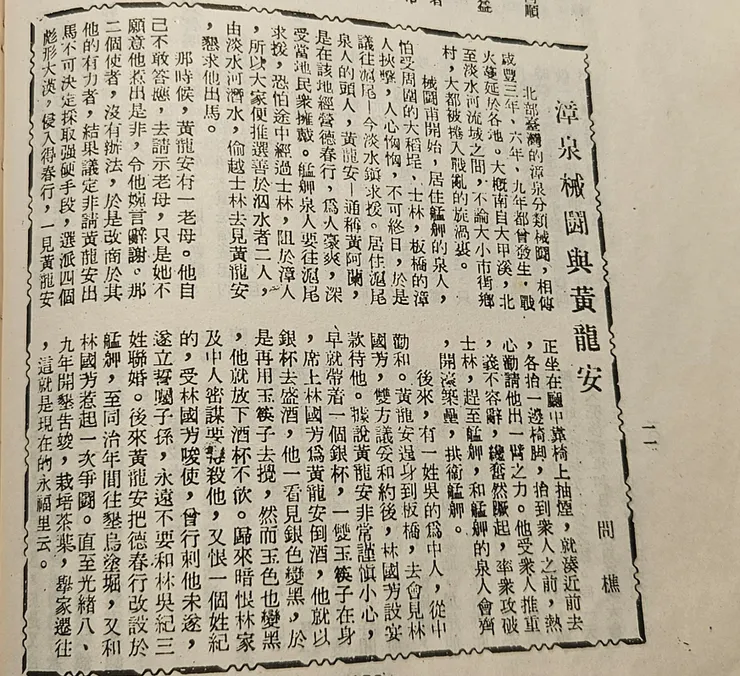 漳泉械鬪與黃龍安
一一
問樵
北部臺灣的漳泉分類械鬪，相傳
咸豐三年、六年、九年都曾發生，戰
火蔓延於各地。大概南自大甲溪，北
至淡水河流域之間，不論大小市街鄉
村，大都被捲入戰亂的旋渦裏。
械鬪甫開始，居住艋舺的泉人，
怕受周圍的大稻埕，士林，板橋的漳
人挾擊，人心恟恟，不可終日，於是
議往滬尾—今淡水鎮求援。居住滬尾
泉人的頭人，黃龍安—通稱黃阿蘭，
是在該地經營德春行，爲人豪爽，深
受當地民衆擁戴。艋舺泉人要往滬尾
求援，恐怕途中經過士林，阻於漳人
，所以大家便推選善於泅水者二人，
由淡水河潛水，偷越士林去見黃龍安
，懇求他出馬。
那時候，黃龍安有一老母。他自
己不敢答應，去請示老母，只是她不
願意他惹出是非，令他婉言辭謝。那
二個使者，沒有辦法，於是改商於其
他的有力者，結果議定非請黃龍安出
馬不可決定採取强硬手段，選派四個
彪形大漢，侵入得春行，一見黃龍安
正坐在廳中靠椅上抽煙，就湊近前去
，各抬一邊椅脚，抬到衆人之前，熱
心勸請他出一臂之力。他受衆人推重
，義不容辭，纔奮然蹶起，率衆攻破
士林，趕至艋舺，和艋舺的泉人會齊
，開濠築壘，拱衛艋舺。
後來，有一姓吳的爲中人，從中
勸和。黃龍安逕身到板橋，去會見林
國芳，雙方議妥和約後，林國芳設宴
款待他。據說黃龍安非常謹愼小心，
早就帶着一個銀杯，一雙玉筷子在身
，席上林國芳爲黃龍安倒酒，他就以
銀杯去盛酒，他一看見銀色變黑，於
是再用玉筷子去攪，然而玉色也變黑
，他就放下酒杯不飲。歸來暗恨林家
及中人密謀要毒殺他，又恨一個姓紀
的，受林國芳唆使，曾行刺他未遂，
遂立誓囑子孫，永遠不要和林吳紀三
姓聯婚。後來黃龍安把德春行改設於
艋舺，至同治年間往墾烏塗堀，又和
林國芳惹起一次爭鬪。直至光緖八、
九年開墾吿竣，栽培茶葉，擧家遷往
，這就是現在的永福里云。